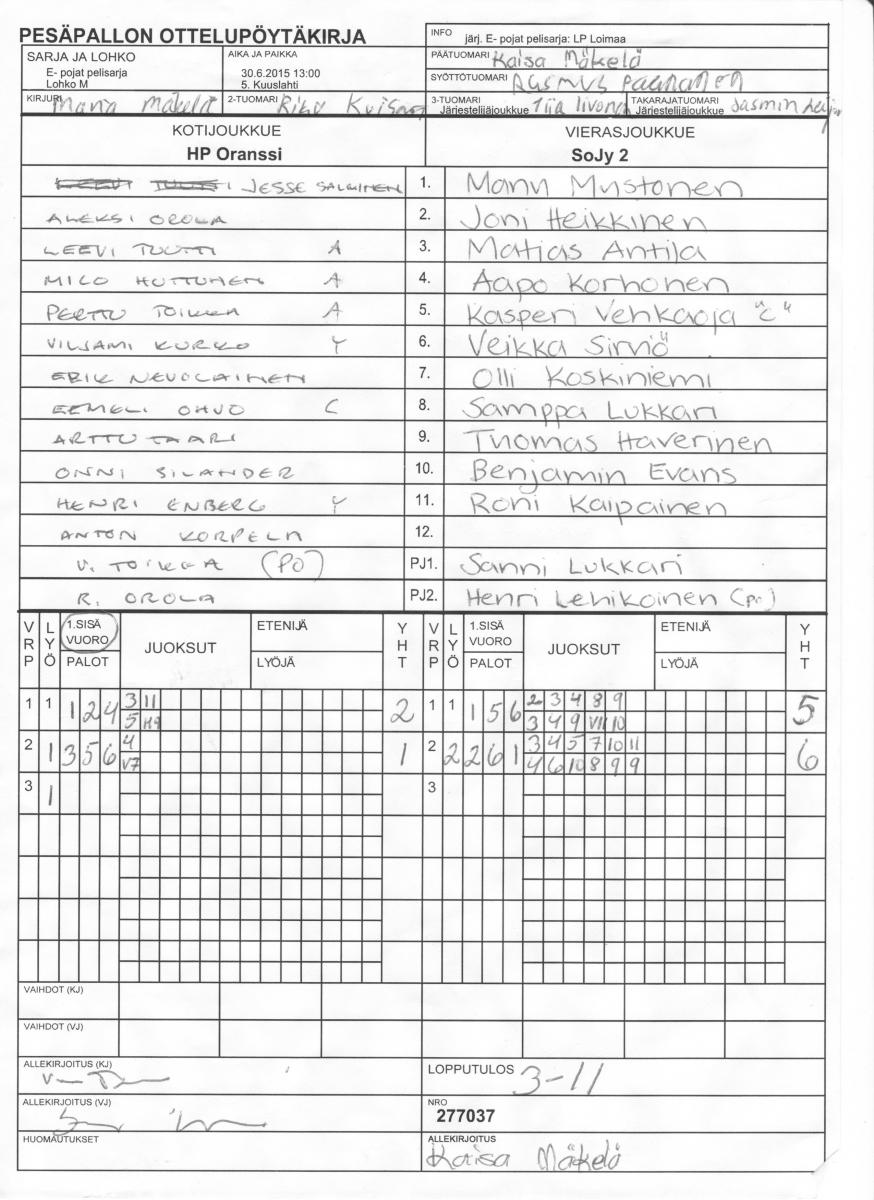 PESÄPALLON OTTELUPÖYTÄKIRJA
INFO järj. E- pojat pelisarja: LP Loimaa
SARJA JA LOHKO
E- pojat pelisarja
Lohko M
AIKA JA PAIKKA
30.6.2015 13:00
5. Kuuslahti
PÄÄTUOMARI Kaisa Mäkelä
SYÖTTÖTUOMARI RASMUS PAANANEN
KIRJURI Mäkelä
2-TUOMARI Riku
3-TUOMARI
Järjestelijäjoukkue Tiia
TAKARAJATUOMARI
Järjestelijäjoukkue Jasmin
KOTIJOUKKUE
HP Oranssi
VIERASJOUKKUE
SoJy 2
JESSE SALMINEN 1. Manu Mustonen
ALEKSI OROLA 2. Joni Heikkinen
LEEVI TUUTTI A 3. Matias Antila
MILO HUTTUNEN A 4. Aapo Korhonen
PERTTU TOIKKA A 5. Kasperi Vehkaoja "C"
VILJAMI KURKO Y 6. Veikka Sirviö
ERIK NEVOLAINEN 7. Olli Koskiniemi
EEMELI OHVO C 8. Samppa Lukkari
ARTTU TAARI 9. Tuomas Haverinen
ONNI SILANDER 10. Benjamin Evans
HENRI ENBERG Y 11. Roni Kaipainen
ANTON KORPELA 12.
V. TOIKKA (PO) PJ1. Sanni Lukkari
R. OROLA PJ2. Henri Lehikoinen (pr)
VRP LYÖ 1.SISÄ VUORO PALOT JUOKSUT ETENIJÄ LYÖJÄ YHT VRP LYÖ 1.SISÄ VUORO PALOT JUOKSUT ETENIJÄ LYÖJÄ YHT
1 1 1 2 4 3 11 2 1 1 1 5 6 2 3 4 8 9 5
5 H9 3 4 9 VII 10
2 1 3 5 6 4 1 2 2 2 6 1 3 4 5 7 10 11 6
V7 4 6 10 8 9 9
3 1 3
VAIHDOT (KJ)
VAIHDOT (VJ)
ALLEKIRJOITUS (KJ)
LOPPUTULOS 3-11
ALLEKIRJOITUS (VJ)
NRO
277037
HUOMAUTUKSET
ALLEKIRJOITUS
Kaisa Mäkelä